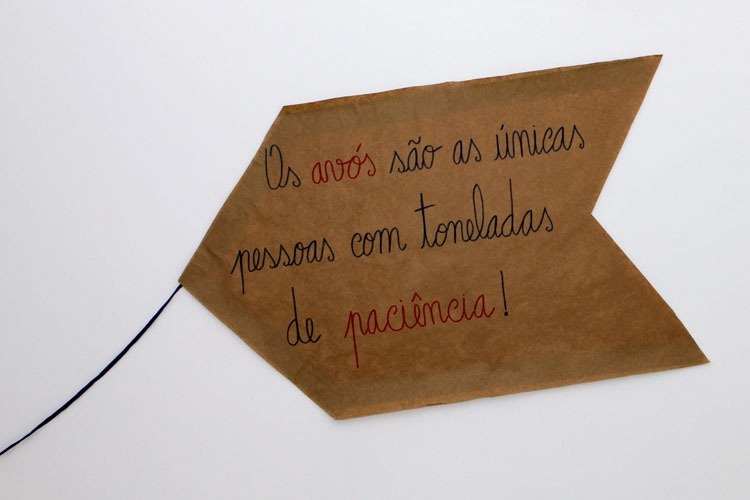 Os avós são as únicas
pessoas com toneladas
de paciência!